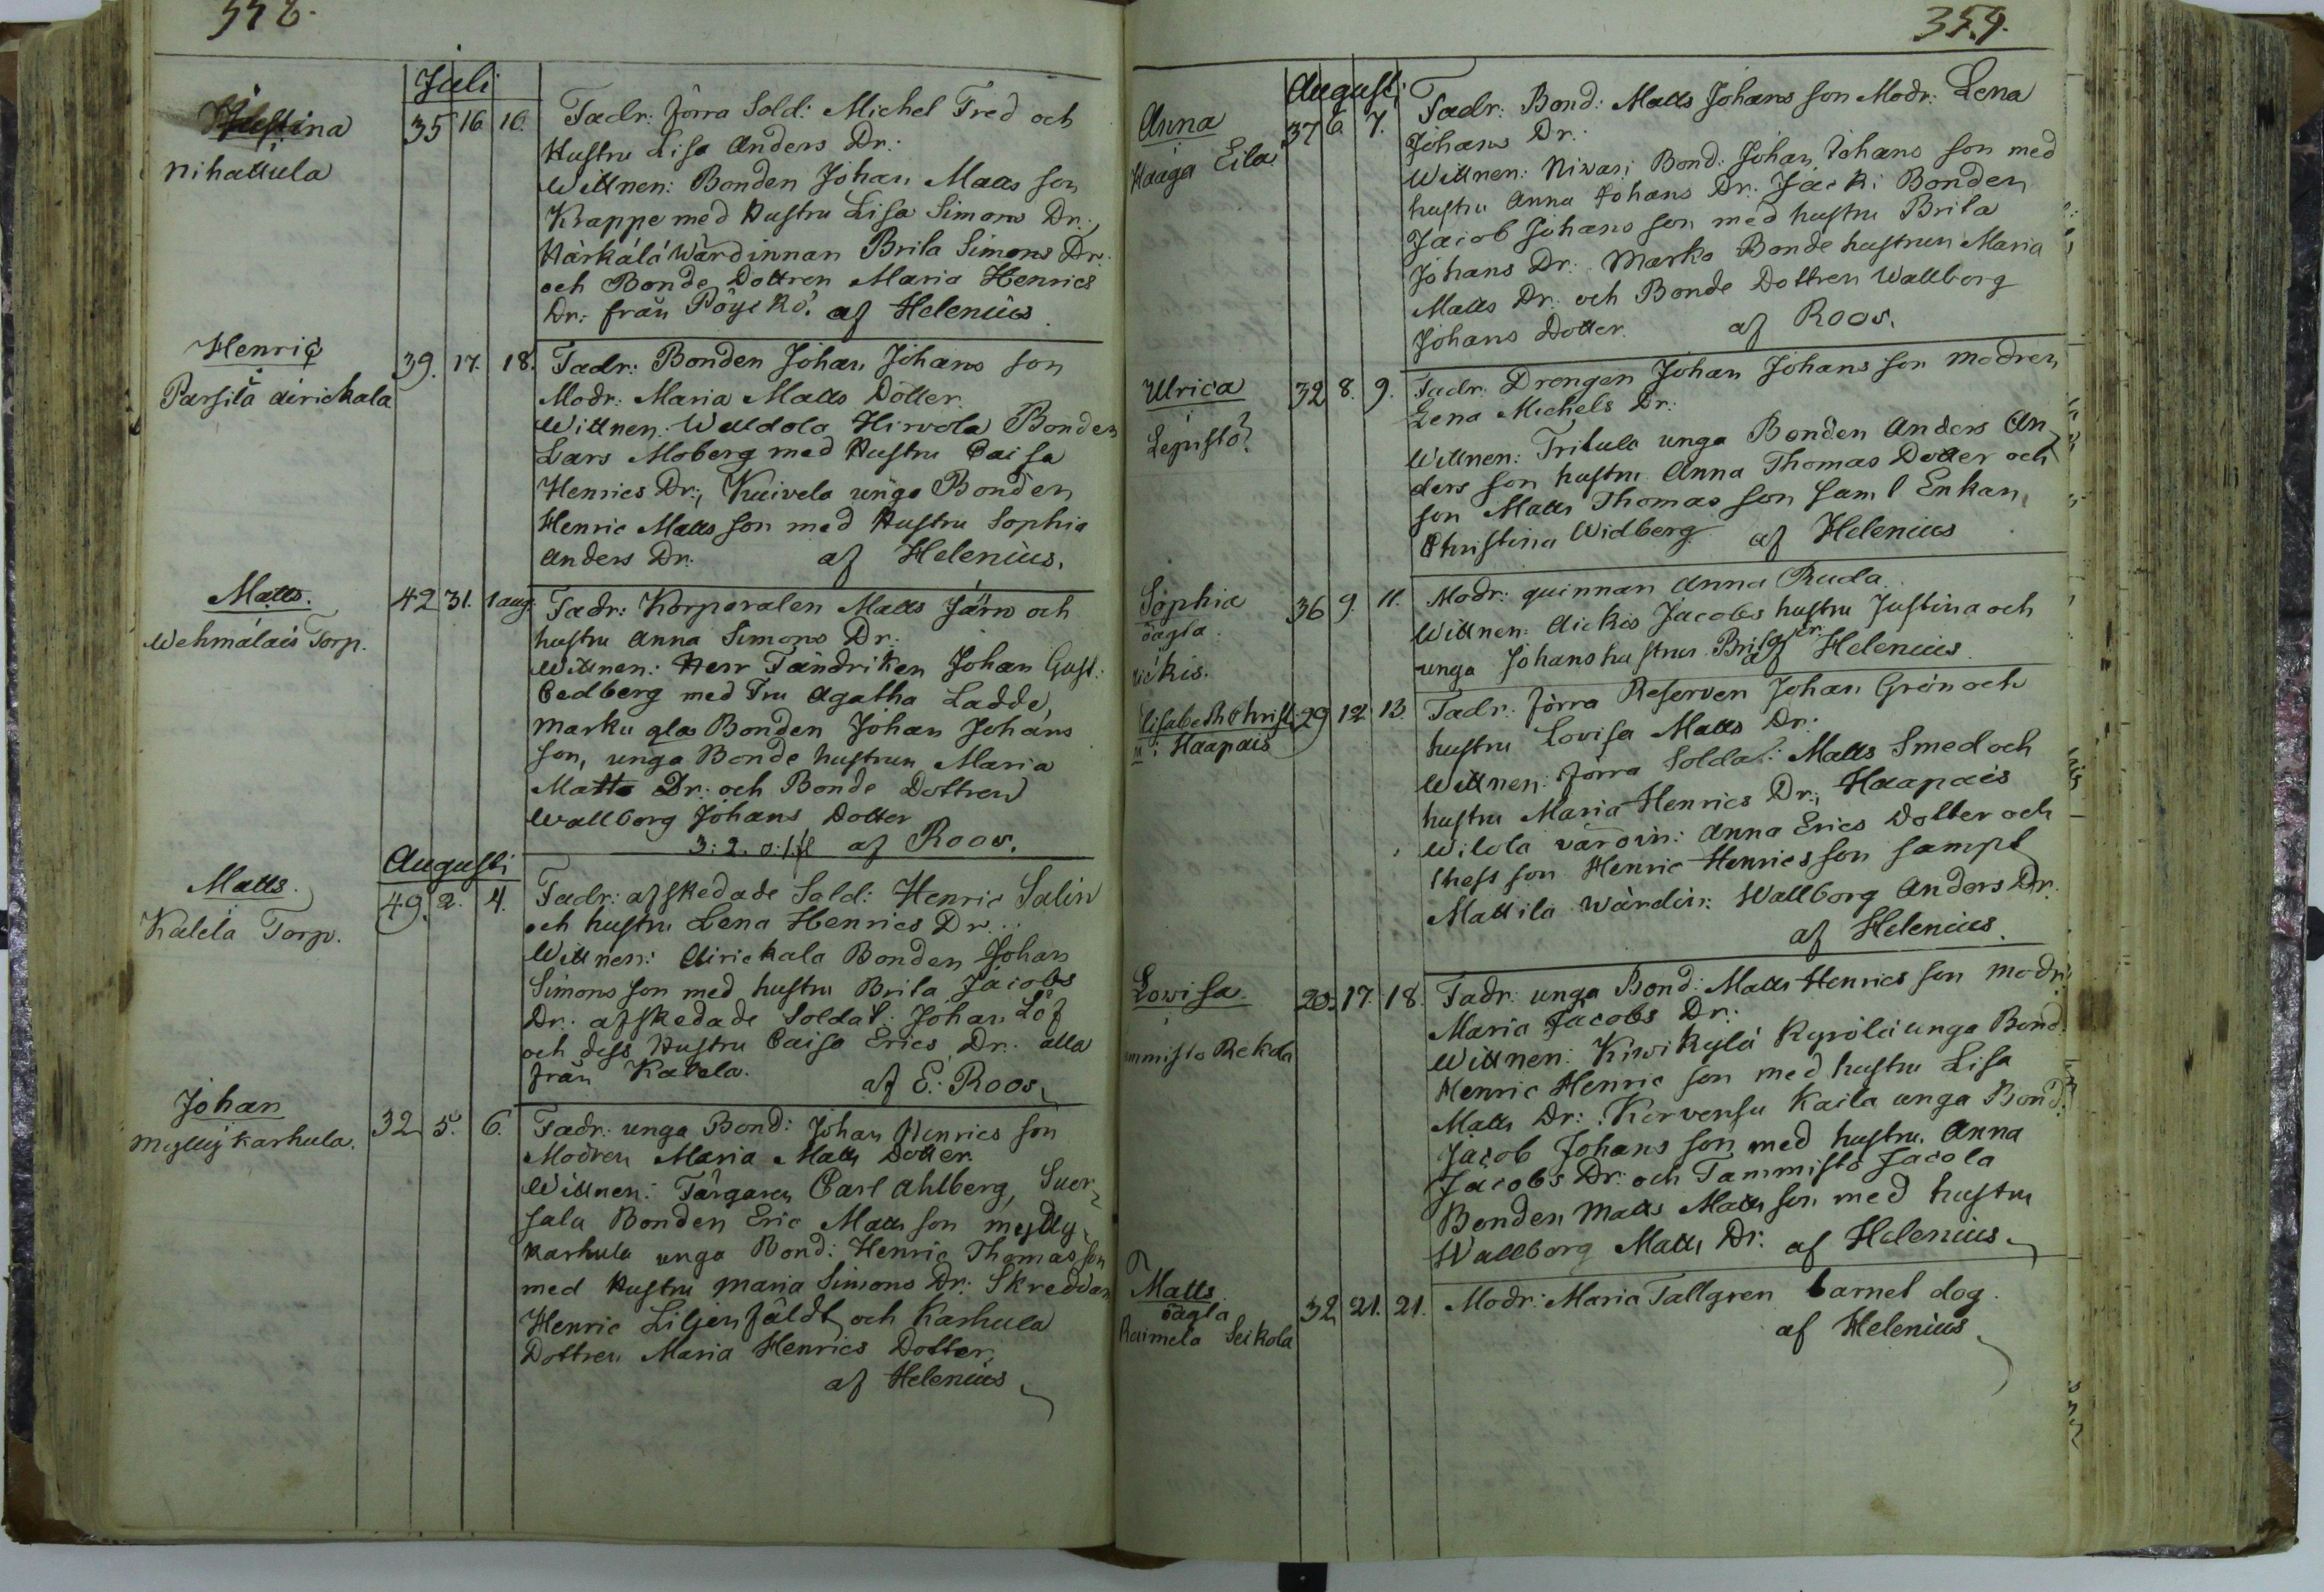 358.
Juli
Justina
i
Nihattula
35 16. 16.
Fadr: förra Sold: Michel Fred och
Hustru Lisa Anders Dr:
Wittnen: Bonden Johan Matts son
Krappe med Hustru Lisa Simons Dr:,
Härkälä Wärdinnan Brita Simons Dr:
och Bonde Dottren Maria Henrics
Dr: från Pöyckö. af Helenius.
Henric
i
Parsila airickala
39. 17. 18.
Fadr: Bonden Johan Johans son
Modr: Maria Matts Dotter.
Wittnen: Hirvola Bonden
Lars Moberg med Hustru Caisa
Henrics Dr:, Kuivela unga Bonden
Henric Matts son med Hustru Sophia
Anders Dr: af Helenius.
Matts.
Wehmalais Torp.
42 31. 1 aug.
Fadr: Korporalen Matts Järn och
hustru Anna Simons Dr:
Wittnen: Herr Fändriken Johan Gust.
Cedberg med Fru Agatha Ladde,
Marku gla Bonden Johan Johans
son, unga Bonde hustrun Maria
Matts Dr: och Bonde Dottren
Wallborg Johans Dotter
af Roos.
Augusti
Matts.
i
Kalela Torp.
49. 2. 4.
Fadr: afskedade Sold: Henric Salin
och hustru Lena Henrics Dr:
Wittnen: Airickala Bonden Johan
Simons son med hustru Brita Jacobs
Dr: afskedade Soldat: Johan Löf
och dess Hustru Caisa Erics Dr: alla
från Kalela.
af E: Roos
Johan
Myllykarhula.
32 5. 6.
Fadr: unga Bond: Johan Henrics son
Modren Maria Matts Dotter.
Wittnen: Färgaren Carl Ahlberg, Suor-
sala Bonden Eric Matts son mylly-
karhula unga Bond: Henric Thomas son
med Hustru Maria Simons Dr: Skreddar
Henric Liljenfäldt och Karhula
Dottren Maria Henrics Dotter,
af Helenius
359.
Augusti
Anna
i
Haaga Eila
37 6. 7.
Fadr: Bond: Matts Johans son Modr: Lena
Johans Dr:
Wittnen: Niwari Bond: Johan Johans son med
hustru Anna Johans Dr: Jäcki Bonden
Jacob Johans son med hustru Brita
Johans Dr: Marko Bonde hustrun Maria
Matts Dr: och Bonde Dottren Wallborg
Johans Dotter. af Roos.
Ulrica
i
Lepistö
32 8. 9.
Fadr: Drengen Johan Johans son modren
Lena Michels Dr:
Wittnen: Tritula unga Bonden Anders An-
ders son hustru Anna Thomas Dotter och
son Matts Thomas son saml Enkan
Christina Widberg. af Helenius
Sophia
öägta
36 9. 11.
Modr: quinnan Anna Ruda.
Wittnen: Aickis Jacobs hustru Justina och
unga Johans hustrun Brita Dr:
af Helenius
29 12. 13.
i Haapais
Fadr: förra Reserven Johan Grön och
hustru Lovisa Matts Dr:
Wittnen: förra Soldat: Matts Smed och
hustru Maria Henrics Dr:, Haapais
Wilola värdin: Anna Erics Dotter och
thess son Henric Henrics son sampt
Mattila wärdin: Wallborg Anders Dr:
af Helenius.
Lowisa.
i
20. 17. 18.
Fadr: unga Bond: Matts Henrics son modr:
Maria Jacobs Dr:
Wittnen: Kiwikylä Kyrölä unga Bond:
Henric Henric son med hustru Lisa
Matts Dr: Korvensu Kaila unga Bond:
Jacob Johans son med hustru Anna
Jacobs Dr: och Tammistö Jacola
Bonden Matts Matts son med hustru
Wallborg Matts Dr: af Helenius
Matts.
öägta
Raimela Seikola
32 21. 21.
Modr: Maria Tallgren barnet dog.
af Helenius